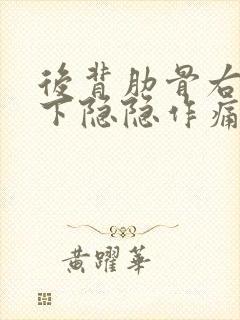 後背肋骨右
下隐隐作痛
黄躍華